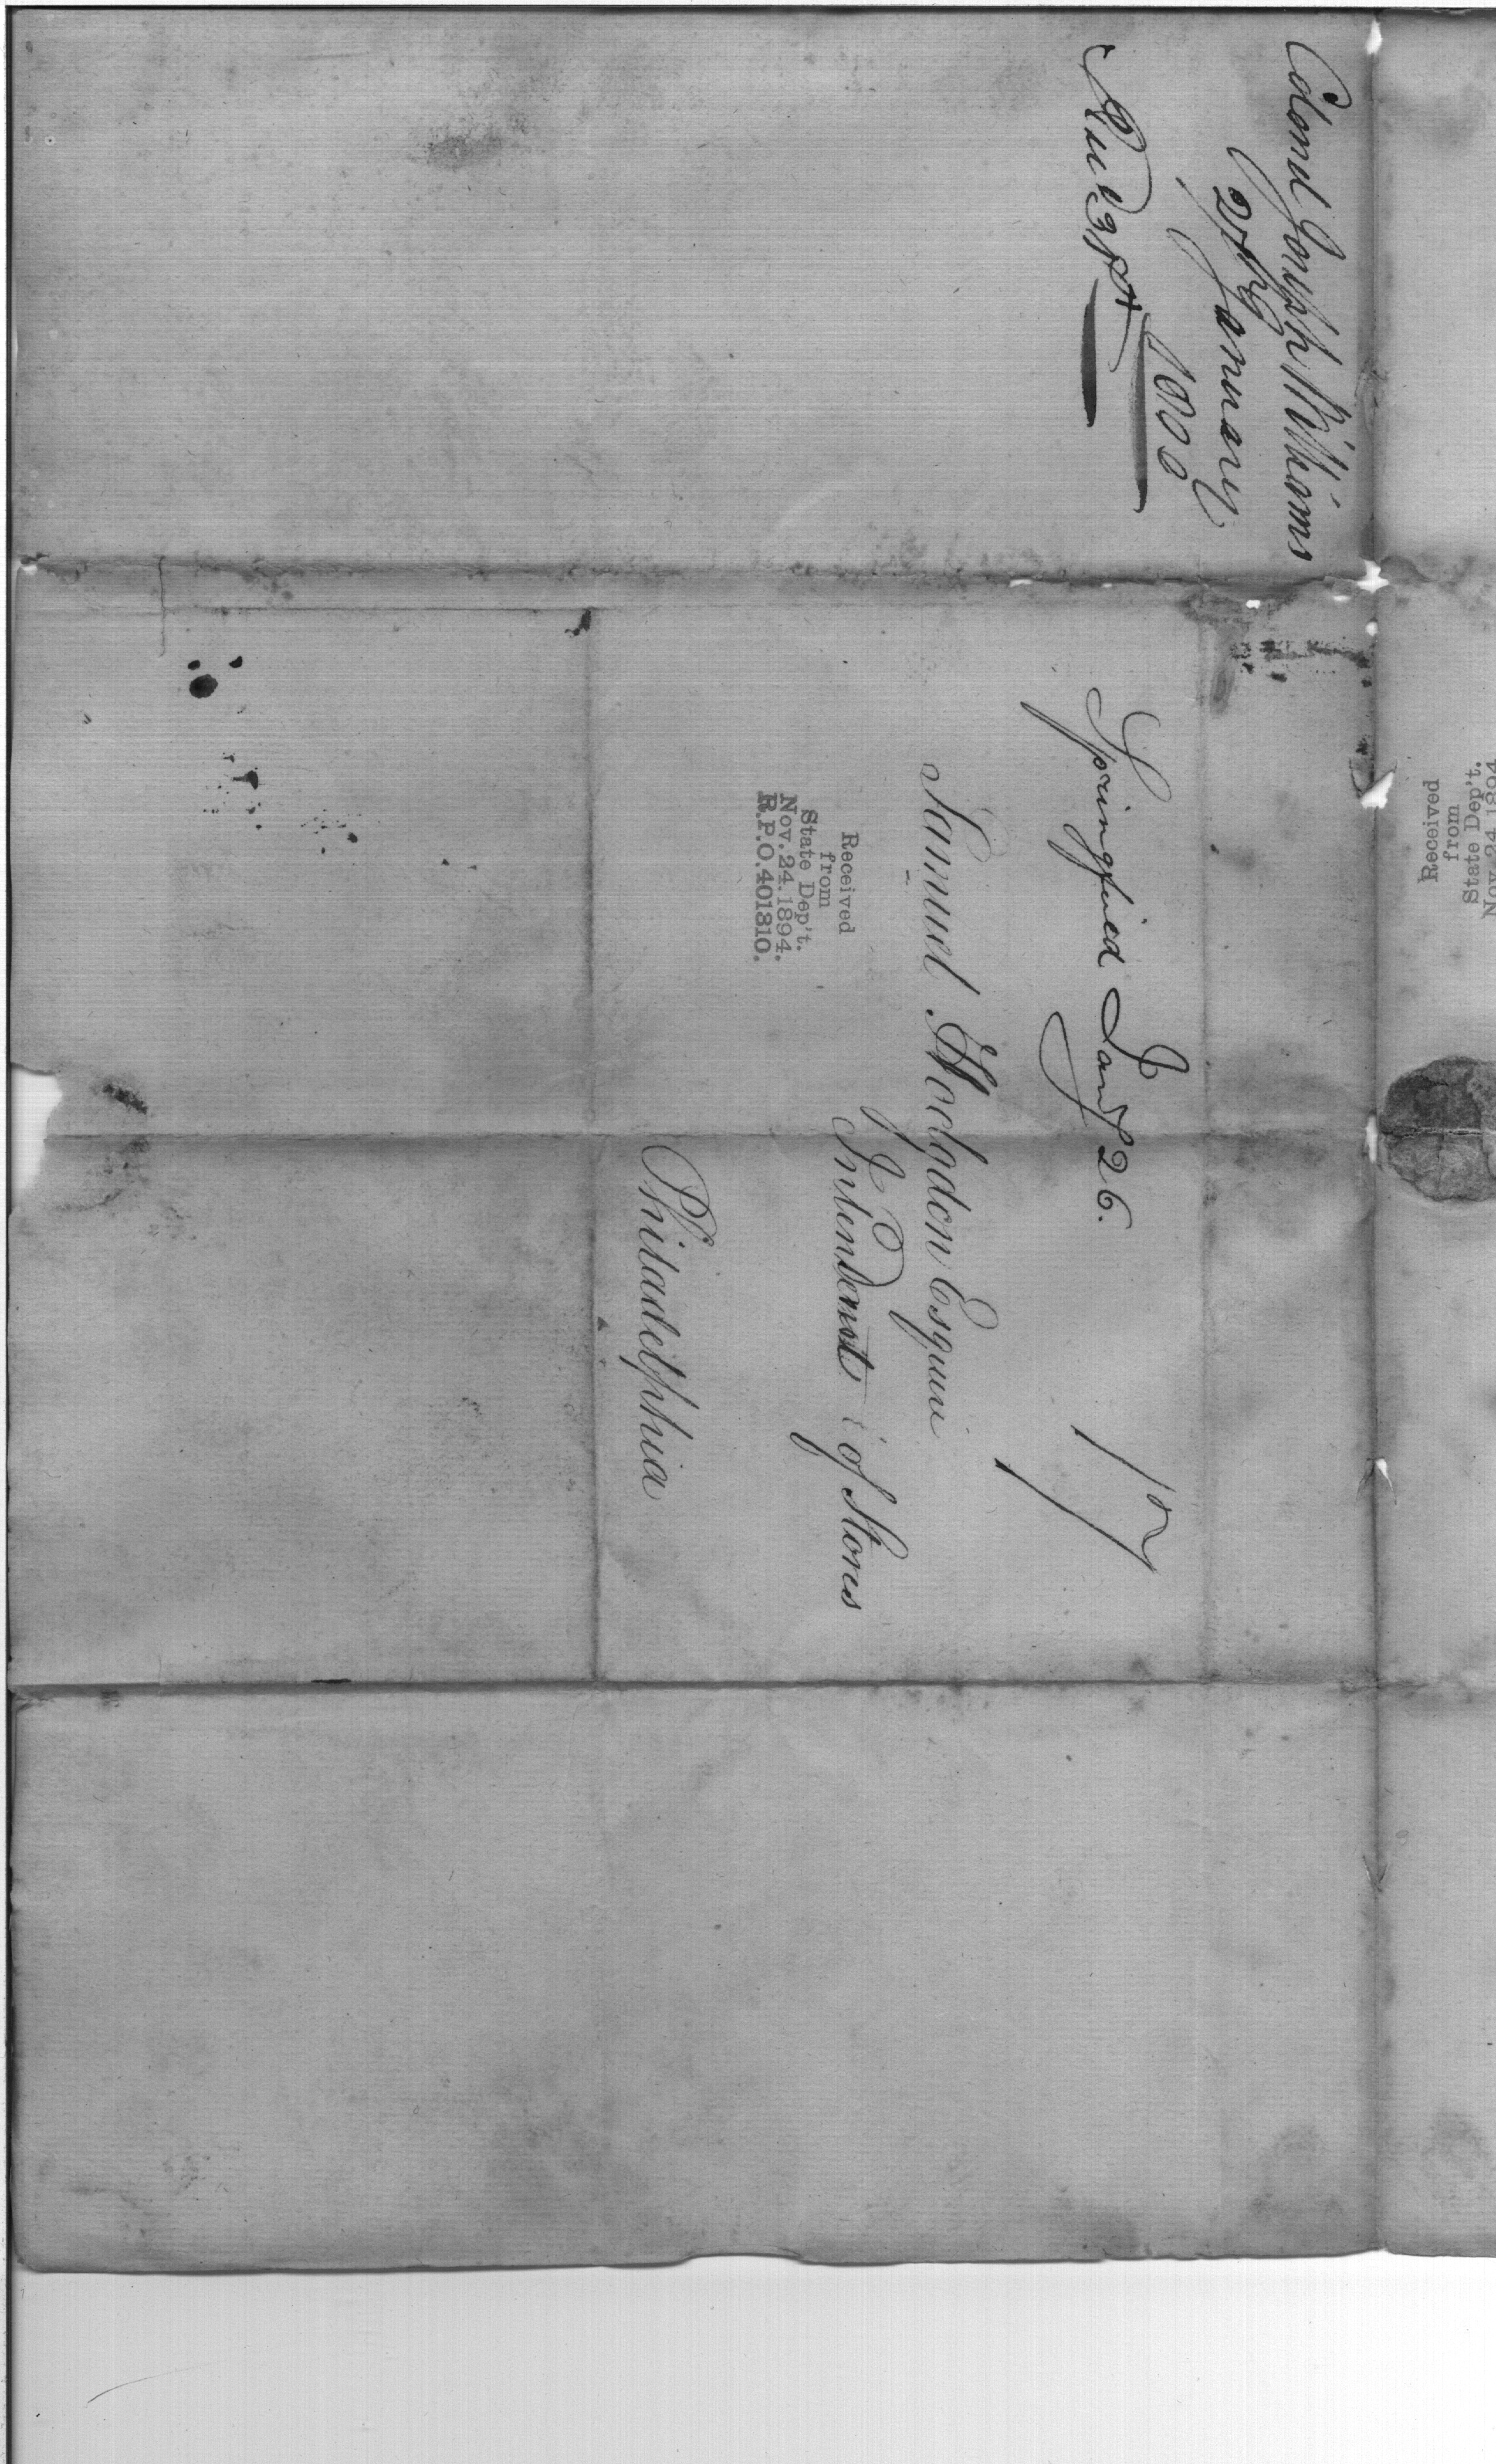 Colonel Joseph Williams
January
1800
Springfield Jany 26.
17
Samuel Hodgdon Esquire
Intendant of Stores
Philadelphia
Received
from
State Dep't.
Nov. 24. 1894.
R.P.O. 401810.
Received
from
State Dep't.
Nov. 24. 1894